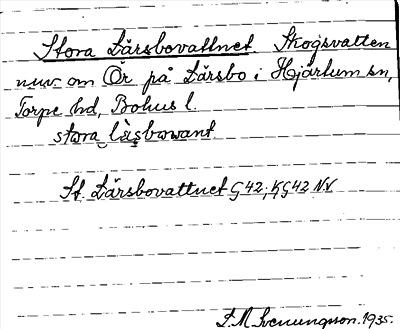 Stora Lärsbovattnet. Skogsvatten
nuv om Ör på Lärsbo i Hjärtum sn,
Torpe hd, Bohus l.
stora läsbowant
St. Lärsbovattnet G42; KG42 NV
L.M. Svenungson. 1935.